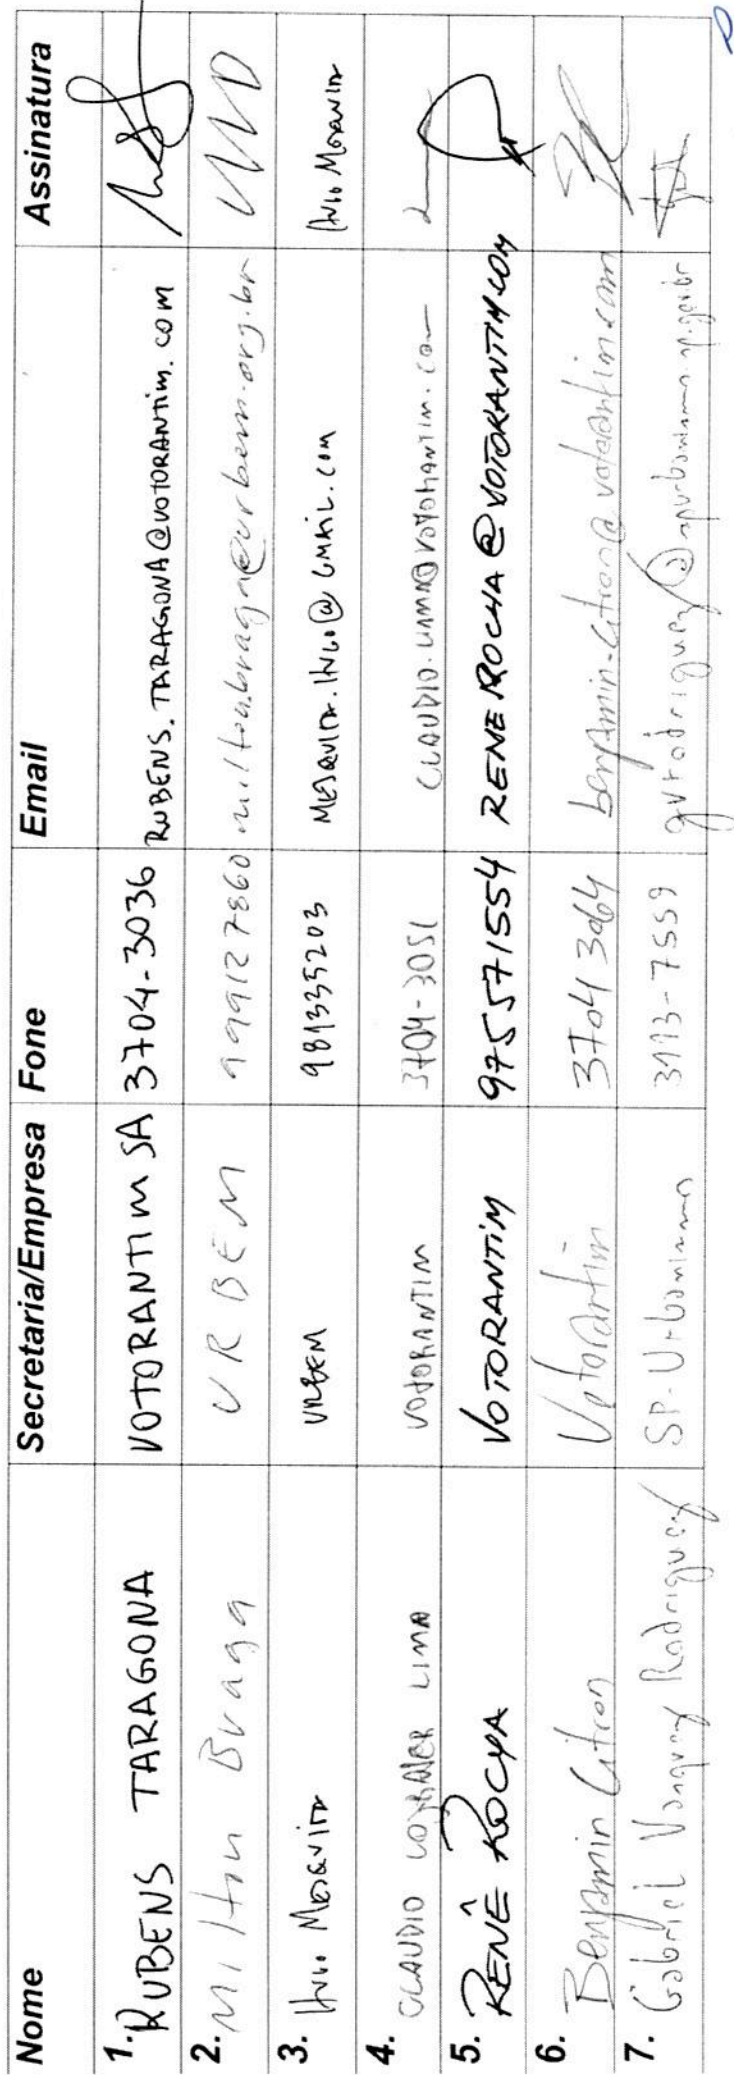 Nome Secretaria/Empresa Fone Email Assinatura
1. RUBENS TARAGONA VOTORANTIM SA 3704-3036 RUBENS.TARAGONA@VOTORANTIM.COM
2. Milton Braga URBEM 999127860 milton.braga@urbem.org.br
3. HUGO MESQUITA URBEM 981335203 MESQUITA.HUGO@GMAIL.COM
4. CLAUDIO LIMA VOTORANTIM 3704-3051 CLAUDIO.LIMA@VOTORANTIM.COM
5. RENÊ ROCHA VOTORANTIM 975571554 RENE.ROCHA@VOTORANTIM.COM
6. Benjamin Citron Votorantim 3704 3064 benjamin.citron@votorantim.com
7. Gabriel Vazquez Rodriguez SP-Urbanismo 3113-7559